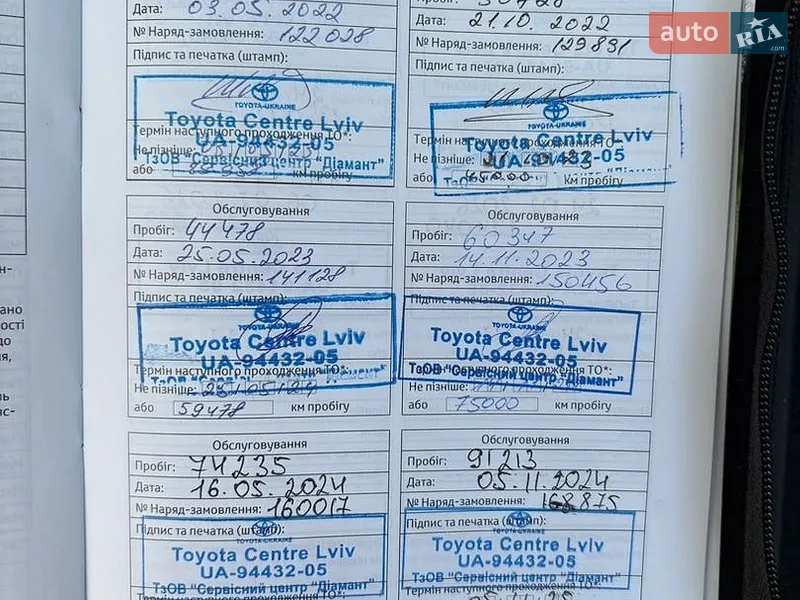 Дата: 03.05.2022
№ Наряд-замовлення: 122028
Підпис та печатка (штамп):
TOYOTA-UKRAINE
Toyota Centre Lviv
UA-94432-05
Термін наступного проходження ТО*:
Не пізніше:
ТзОВ "Сервісний центр "Діамант"
або км пробігу
Дата: 21.10.2022
№ Наряд-замовлення: 129831
Підпис та печатка (штамп):
TOYOTA-UKRAINE
Toyota Centre Lviv
UA-94432-05
Термін наступного проходження ТО
Не пізніше:
або км пробігу
auto RIA .com
Обслуговування
Пробіг: 44478
Дата: 25.05.2023
№ Наряд-замовлення: 141128
Підпис та печатка (штамп):
TOYOTA-UKRAINE
Toyota Centre Lviv
UA-94432-05
Термін наступного проходження ТО*:
Не пізніше: 25 05 24
або 59478 км пробігу
Обслуговування
Пробіг: 60347
Дата: 14.11.2023
№ Наряд-замовлення: 150456
Підпис та печатка (штамп):
TOYOTA-UKRAINE
Toyota Centre Lviv
UA-94432-05
Термін наступного проходження ТО*:
ТзОВ "Сервісний центр "Діамант"
Не пізніше:
або 75000 км пробігу
Обслуговування
Пробіг: 74235
Дата: 16.05.2024
№ Наряд-замовлення: 160017
Підпис та печатка (штамп):
TOYOTA-UKRAINE
Toyota Centre Lviv
UA-94432-05
ТзОВ "Сервісний центр "Діамант"
Термін наступного проходження ТО*:
Обслуговування
Пробіг: 91213
Дата: 05.11.2024
№ Наряд-замовлення: 168875
Підпис та печатка (штамп):
TOYOTA-UKRAINE
Toyota Centre Lviv
UA-94432-05
ТзОВ "Сервісний центр "Діамант"
Термін наступного проходження ТО*: